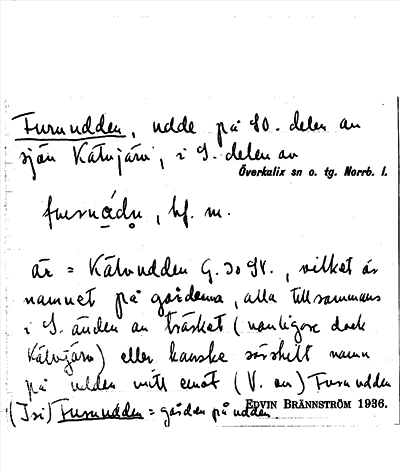 Furuudden, udde på SO. delen av
sjön Kälvjärv, i S. delen av
Överkalix sn o. tg. Norrb. l.
bf. m.
är = Kälvudden G. 30 SV., vilket är
namnet på gårdarna, alla tillsammans
i S. änden av träsket (vanligare dock
Kälvjärv) eller kanske särskilt namn
på udden mitt emot (V. om) Furuudden
Furuudden = gården på udden.
EDVIN BRÄNNSTRÖM 1936.